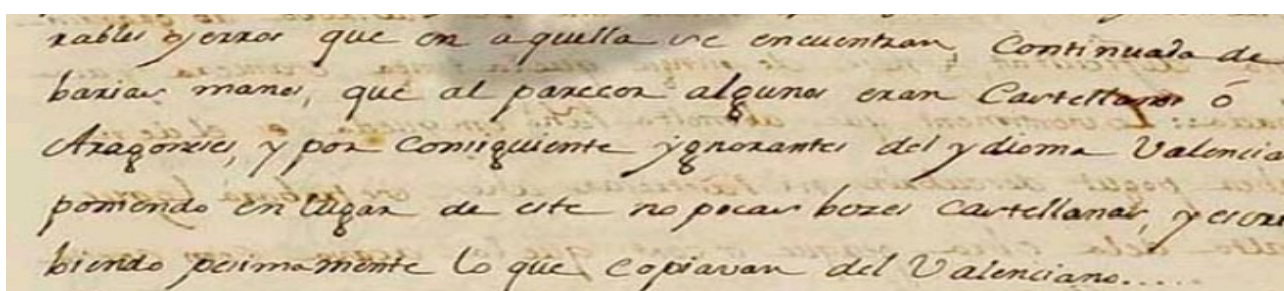 rables yerros que en aquella se encuentran, Continuada de
barias manos, que al parecer algunos eran Castellanos ó
Aragoneses, y por Consiguiente ygnorantes del ydioma Valencia
poniendo en lugar de este no pocas bozes Castellanas, y escri
biendo pesimamente lo que Copiavan del Valenciano.....